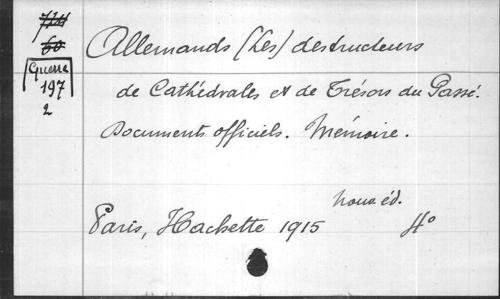 714
60
Guerre
197
2
Allemands (Les) destructeurs
de Cathédrales et de Trésors du Passé.
Documents officiels. Mémoire.
Nouv. éd.
Paris, Hachette 1915 4°